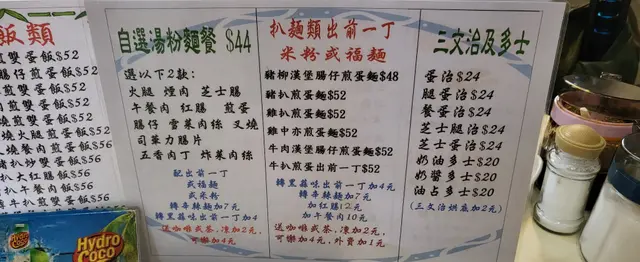 飯類
雙蛋飯$52
腸仔煎蛋飯$52
煎雙蛋飯$52
煎雙蛋飯$52
燒火腿煎蛋飯$55
燒餐肉煎蛋飯$56
扒炒雙蛋飯$56
扒大紅腸飯$56
扒午餐肉飯$56
牛扒煎蛋飯$56
Hydro
Coco
自選湯粉麵餐 $44
選以下2款:
火腿 煙肉 芝士腸
午餐肉 紅腸 煎蛋
腸仔 雪菜肉絲 叉燒
司華力腸片
五香肉丁 炸菜肉絲
配出前一丁
或福麵
或米粉
轉辛辣麵加7元
轉黑蒜味出前一丁加4
送咖啡或茶,凍加2元,
可樂加4元
扒麵類出前一丁
米粉或福麵
豬柳漢堡腸仔煎蛋麵$48
豬扒煎蛋麵$52
雞扒煎蛋麵$52
雞中亦煎蛋麵$52
牛肉漢堡腸仔煎蛋麵$52
牛扒煎蛋麵$52
轉黑蒜味出前一丁加4元
轉辛辣麵加7元
加紅腸12元
加午餐肉10元
送咖啡或茶,凍加2元,
可樂加4元,外賣加1元
三文治及多士
蛋治$24
腿蛋治$24
餐蛋治$24
芝士腿治$24
芝士蛋治$24
奶油多士$20
奶醬多士$20
油占多士$20
(三文治烘底加2元)